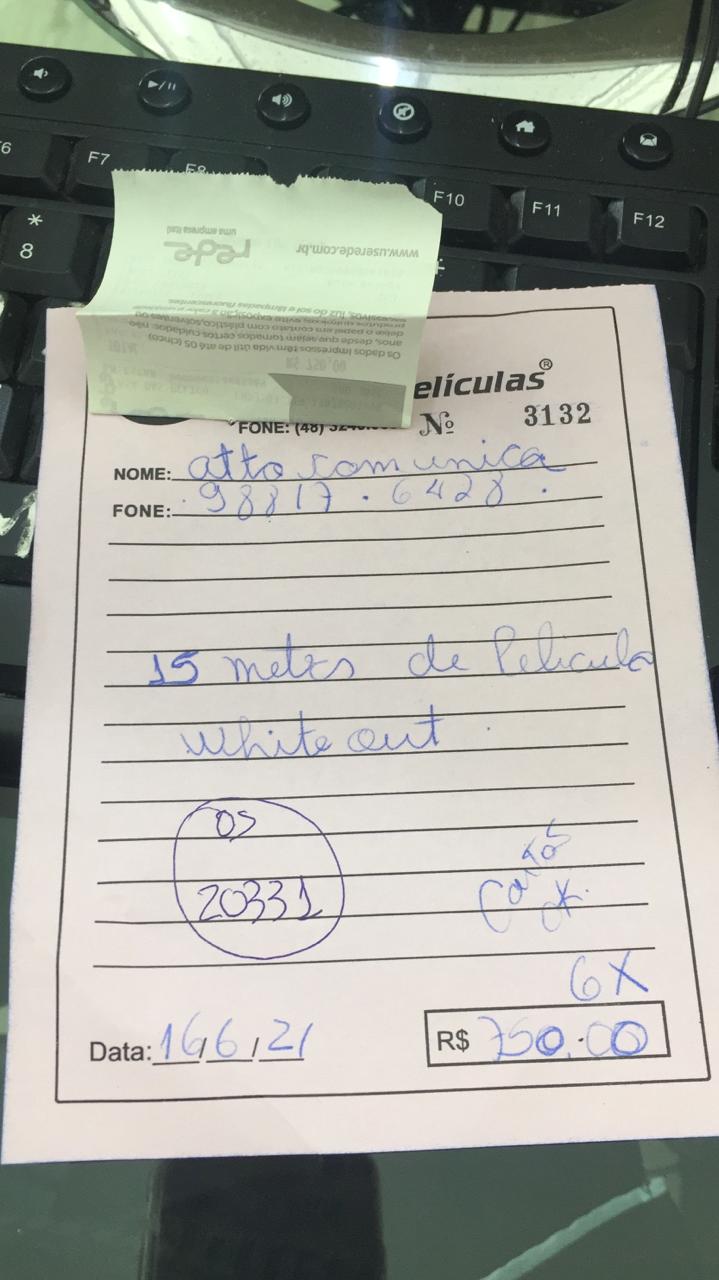 F7
F8
F10
F11
F12
*
8
www.userede.com.br
rede
uma empresa Itaú
Os dados impressos têm vida útil de até 05 (cinco)
anos, desde que sejam tomados certos cuidados: não
deixe o papel em contato com plástico, solventes ou
R$ 750,00
elículas®
FONE: (48)
Nº 3132
NOME: atto comunica
FONE: 98817.6428.
15 metrs de Pelicula
white out.
OS
20331
6X
Data: 16/6/21
R$ 750.00